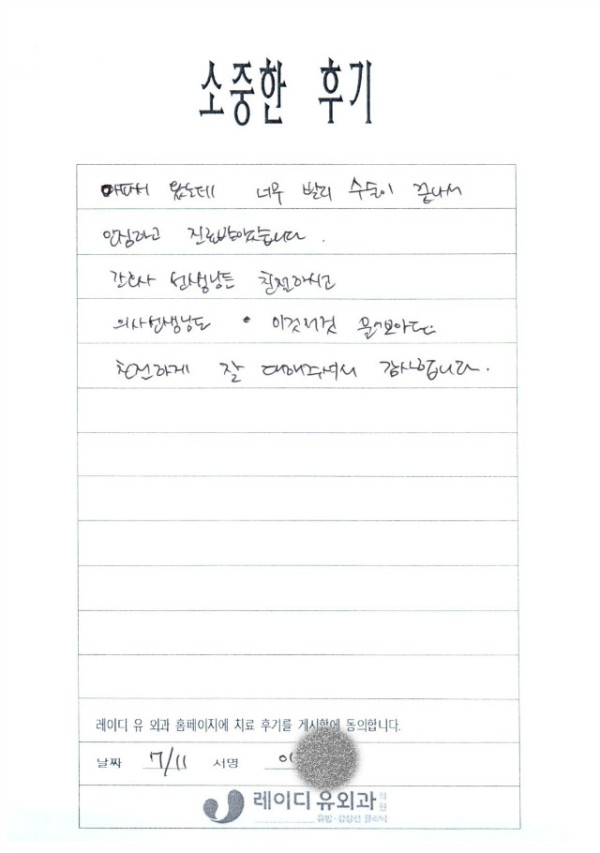 소중한 후기
아파서 왔는데 너무 빨리 수술이 끝나서
안심하고 진료받았습니다.
간호사 선생님도 친절하시고
의사선생님도 이것저것 물어보아도
친절하게 잘 대해주셔서 감사합니다.
레이디 유 외과 홈페이지에 치료 후기를 게시함에 동의합니다.
날짜 7/11 서명 이
레이디 유외과 의원
유방·갑상선 클리닉